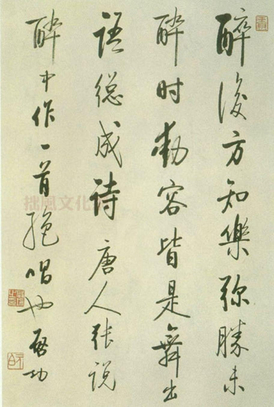 醉後方知樂弥勝未
醉时動容皆是舞出
語總成诗 唐人张说
醉中作一首絶唱也 啓功
拙風文化